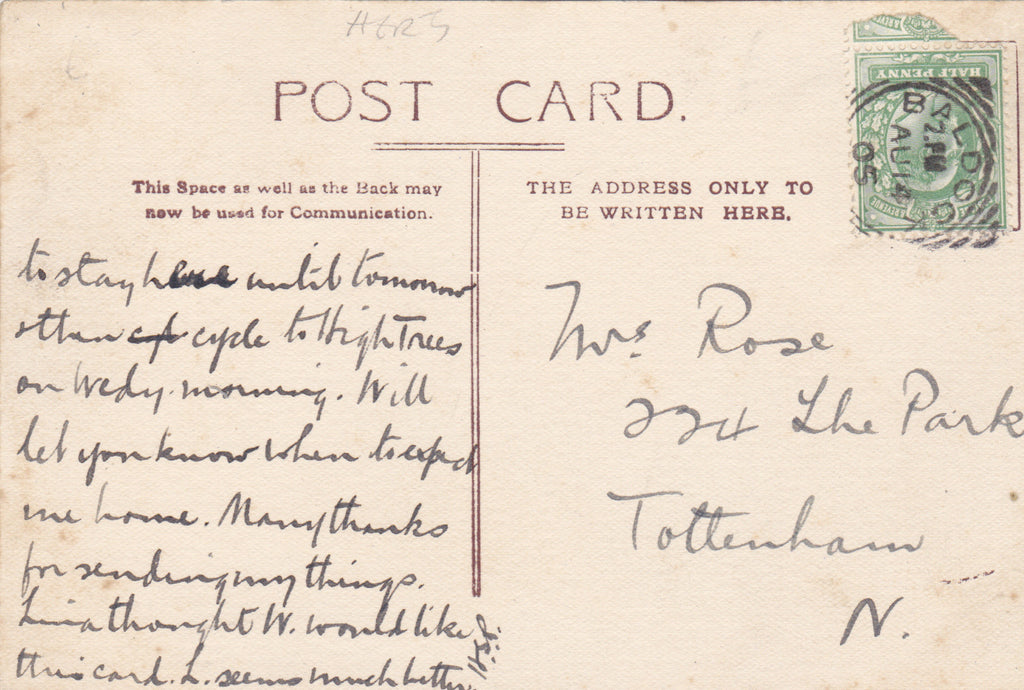 HERTS
POST CARD.
This Space as well as the Back may
now be used for Communication.
THE ADDRESS ONLY TO
BE WRITTEN HERE.
HALF PENNY
BALDOCK
2. PM
AU 14
05
to stay here until tomorrow
& then cycle to High Trees
on Wedy. morning. Will
let you know when to expect
me home. Many thanks
for sending my things.
Lina thought W. would like
this card. L. seems much better.
Mrs Rose
224 The Park
Tottenham
N.